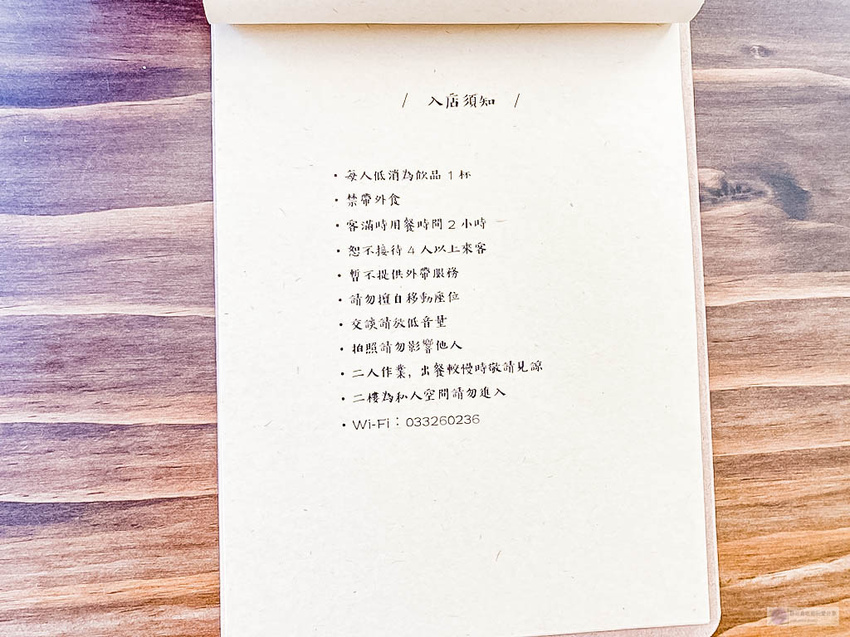 / 入店須知 /
・每人低消為飲品 1 杯
・禁帶外食
・客滿時用餐時間 2 小時
・恕不接待 4 人以上來客
・暫不提供外帶服務
・請勿擅自移動座位
・交談請放低音量
・拍照請勿影響他人
・二人作業，出餐較慢時敬請見諒
・二樓為私人空間請勿進入
・Wi-Fi：033260236